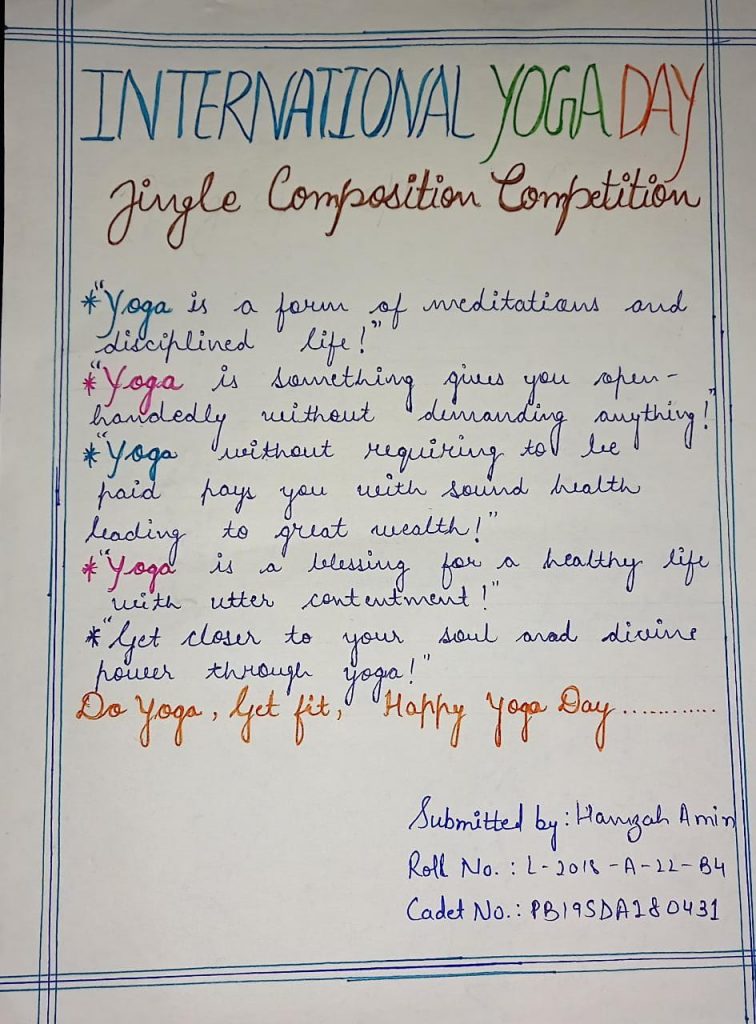 INTERNATIONAL YOGA DAY
Jingle Composition Competition
*"Yoga is a form of meditations and
disciplined life!"
*"Yoga is something gives you open-
handedly without demanding anything!"
*"Yoga without requiring to be
paid pays you with sound health
leading to great wealth!"
*"Yoga is a blessing for a healthy life
with utter contentment!"
*"Get closer to your soul and divine
power through yoga!"
Do Yoga, Get fit, Happy Yoga Day............
Submitted by: Hamzah Amin
Roll No.: L-2018-A-22-B4
Cadet No.: PB19SDA280431